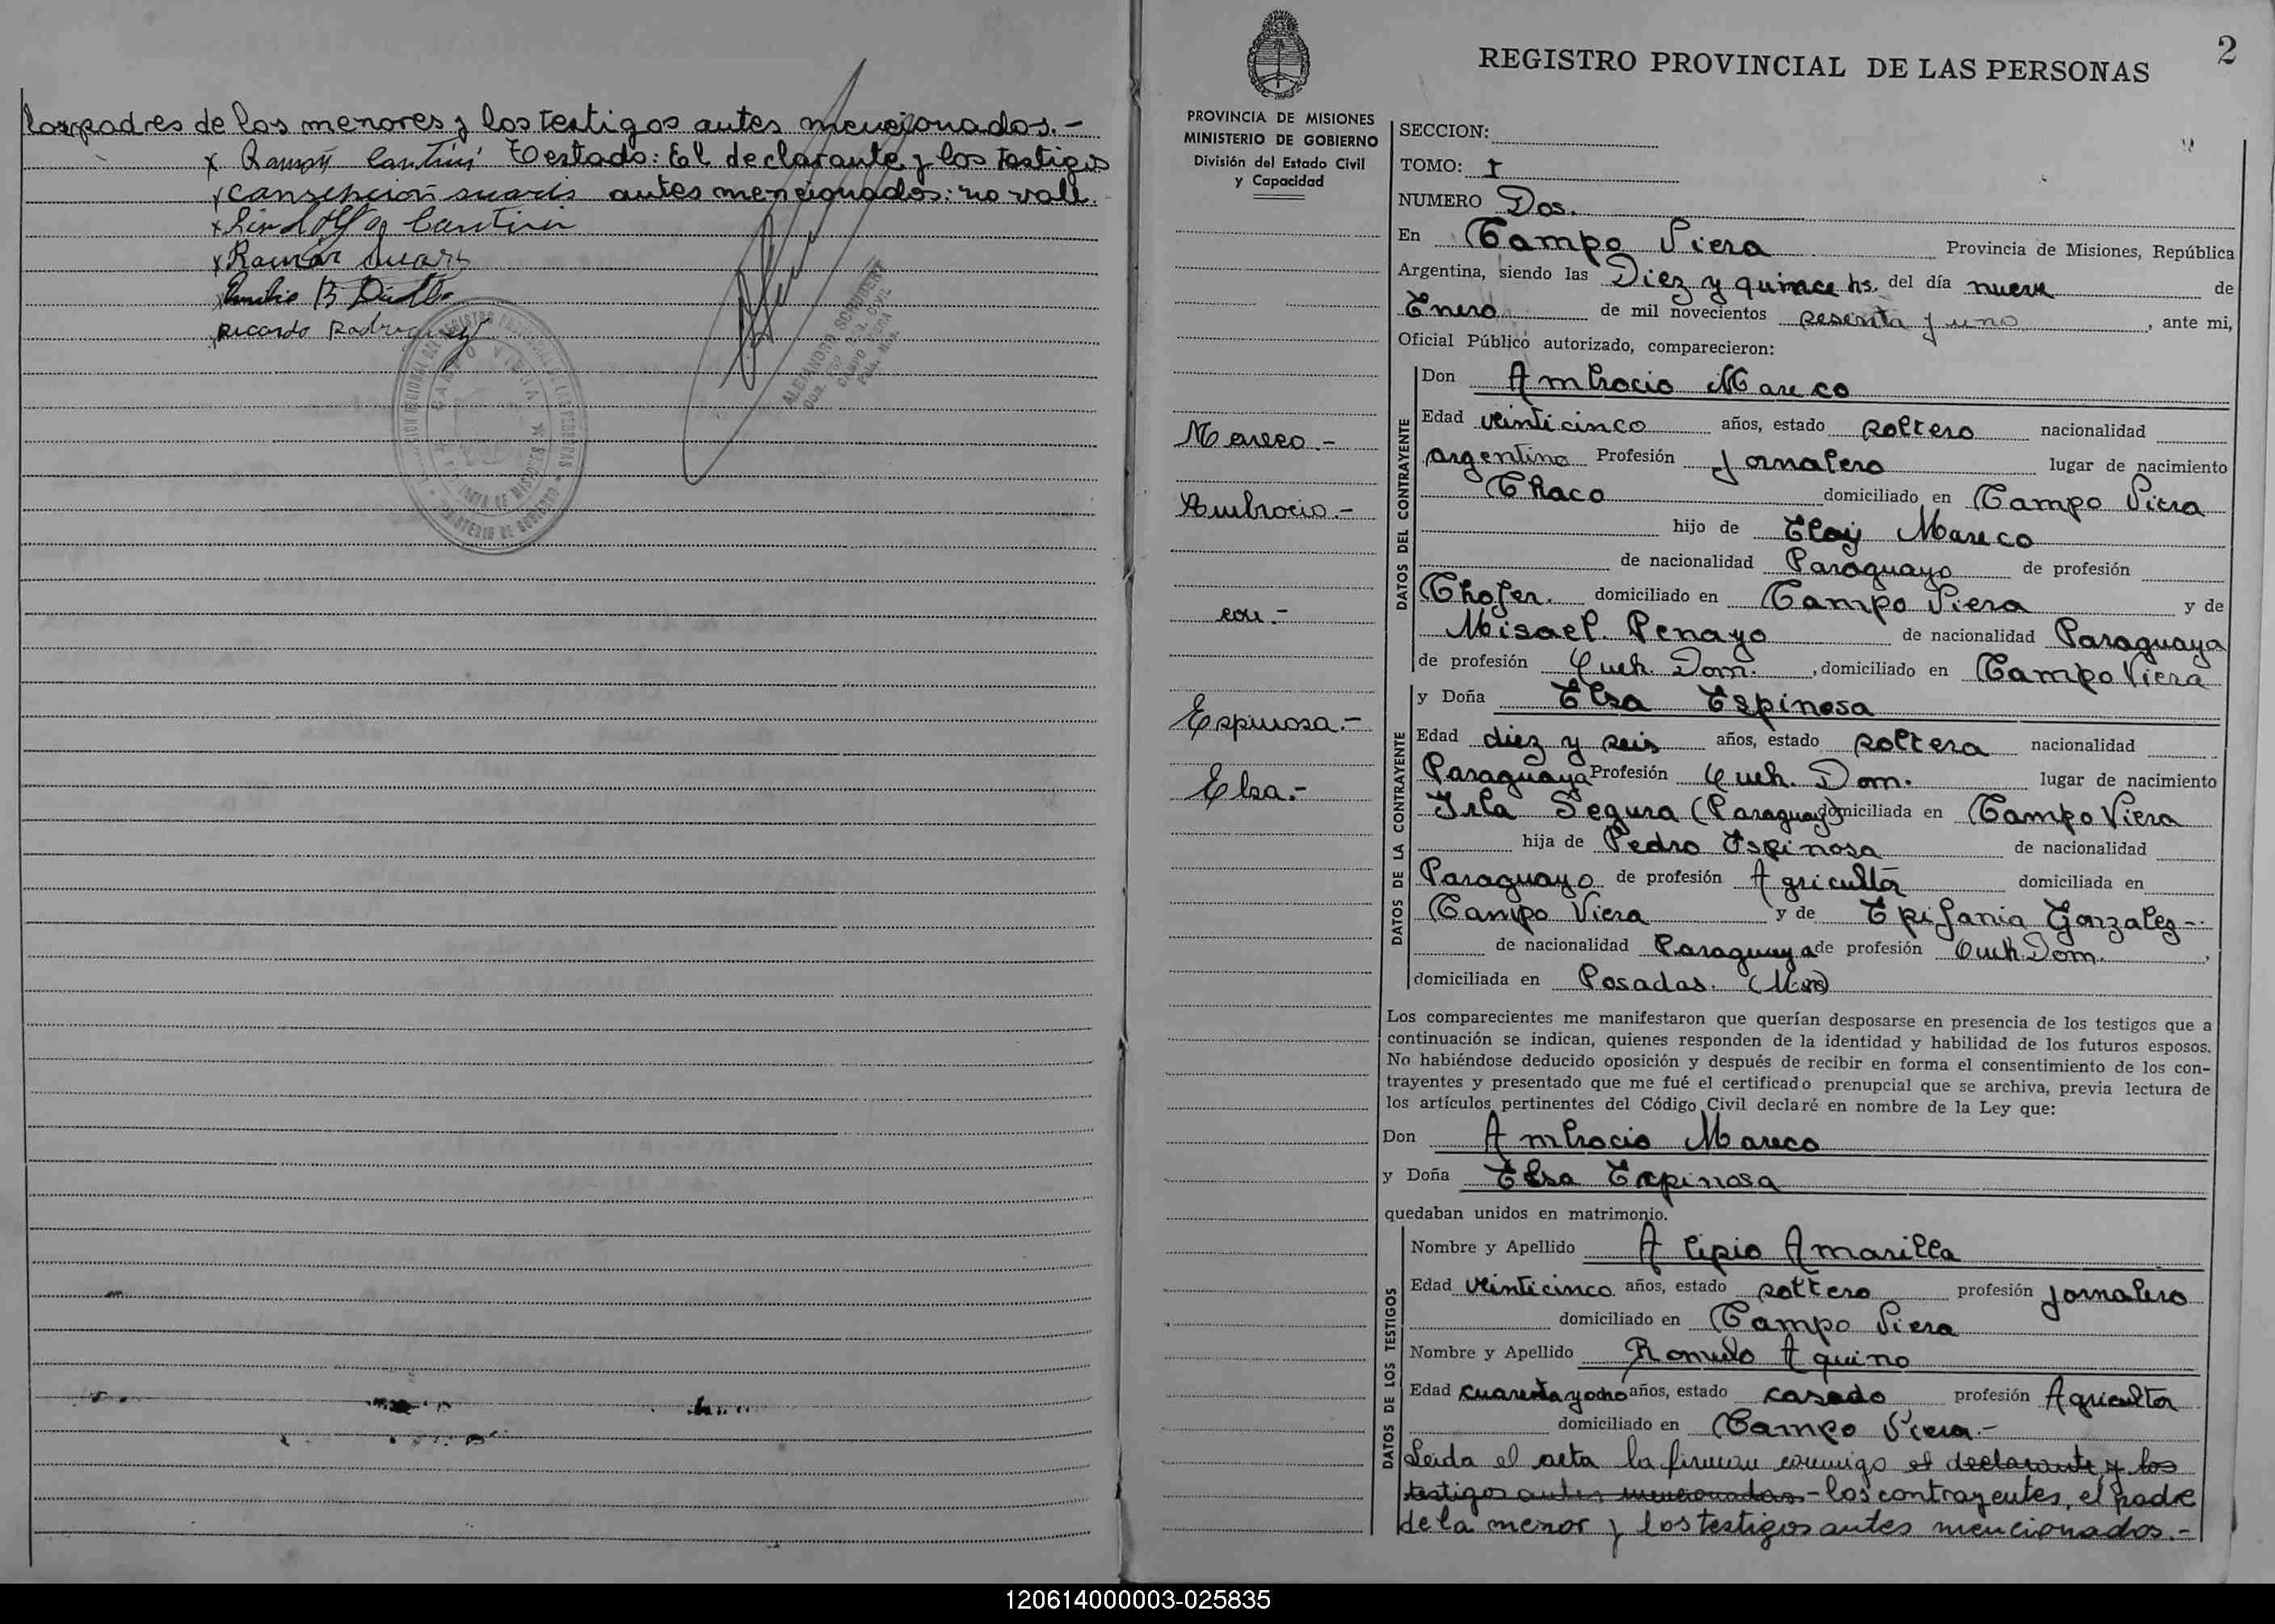 los padres de los menores y los testigos antes mencionados.-
x Ramón Testado: El declarante y los testigos
x antes mencionados: no vale.
x
x Ramón
x Emilio B
x Ricardo Rodriguez
ALEJANDRO
CAMPO VIERA
2
REGISTRO PROVINCIAL DE LAS PERSONAS
PROVINCIA DE MISIONES
MINISTERIO DE GOBIERNO
División del Estado Civil
y Capacidad
Mareco.-
Ambrocio.-
con.-
Espinosa.-
Elsa.-
SECCION:
TOMO: I
NUMERO Dos.
En Campo Viera Provincia de Misiones, República
Argentina, siendo las Diez y quince hs. del día nueve de
Enero de mil novecientos sesenta y uno, ante mi,
Oficial Público autorizado, comparecieron:
DATOS DEL CONTRAYENTE
Don Ambrocio Mareco
Edad veinticinco años, estado soltero nacionalidad
argentino Profesión Jornalero lugar de nacimiento
Chaco domiciliado en Campo Viera
hijo de Eloy Mareco
de nacionalidad Paraguayo de profesión
Chofer. domiciliado en Campo Viera y de
Misael Penayo de nacionalidad Paraguaya
de profesión Queh. Dom., domiciliado en Campo Viera
DATOS DE LA CONTRAYENTE
y Doña Elsa Espinosa
Edad diez y seis años, estado soltera nacionalidad
Paraguaya Profesión Queh. Dom. lugar de nacimiento
Isla Segura (Paraguay) domiciliada en Campo Viera
hija de Pedro Espinosa de nacionalidad
Paraguayo de profesión Agricultor domiciliada en
Campo Viera y de Epifania Gonzalez-.
de nacionalidad Paraguaya de profesión Queh Dom.,
domiciliada en Posadas. (Mns)
Los comparecientes me manifestaron que querían desposarse en presencia de los testigos que a
continuación se indican, quienes responden de la identidad y habilidad de los futuros esposos.
No habiéndose deducido oposición y después de recibir en forma el consentimiento de los con-
trayentes y presentado que me fué el certificado prenupcial que se archiva, previa lectura de
los artículos pertinentes del Código Civil declaré en nombre de la Ley que:
Don Ambrocio Mareco
y Doña Elsa Espinosa
quedaban unidos en matrimonio.
DATOS DE LOS TESTIGOS
Nombre y Apellido Alipio Amarilla
Edad veinticinco años, estado soltero profesión Jornalero
domiciliado en Campo Viera
Nombre y Apellido Romulo Aquino
Edad cuarenta y ocho años, estado casado profesión Agricultor
domiciliado en Campo Viera.-
Leida el acta la firman conmigo el declarante y los
testigos antes mencionados - los contrayentes, el padre
de la menor y los testigos antes mencionados.-
120614000003-025835